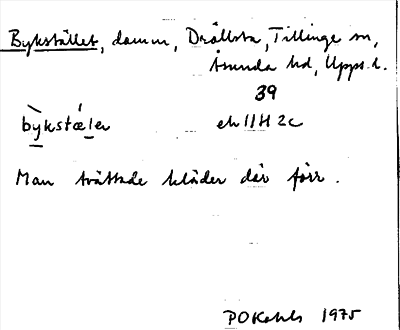 Bykstället, damm, Drällsta, Tillinge sn,
Åsunda hd, Upps. l.
39
bỳ̱kstǽḻer ek 11H 2c
Man tvättade kläder där förr.
1975